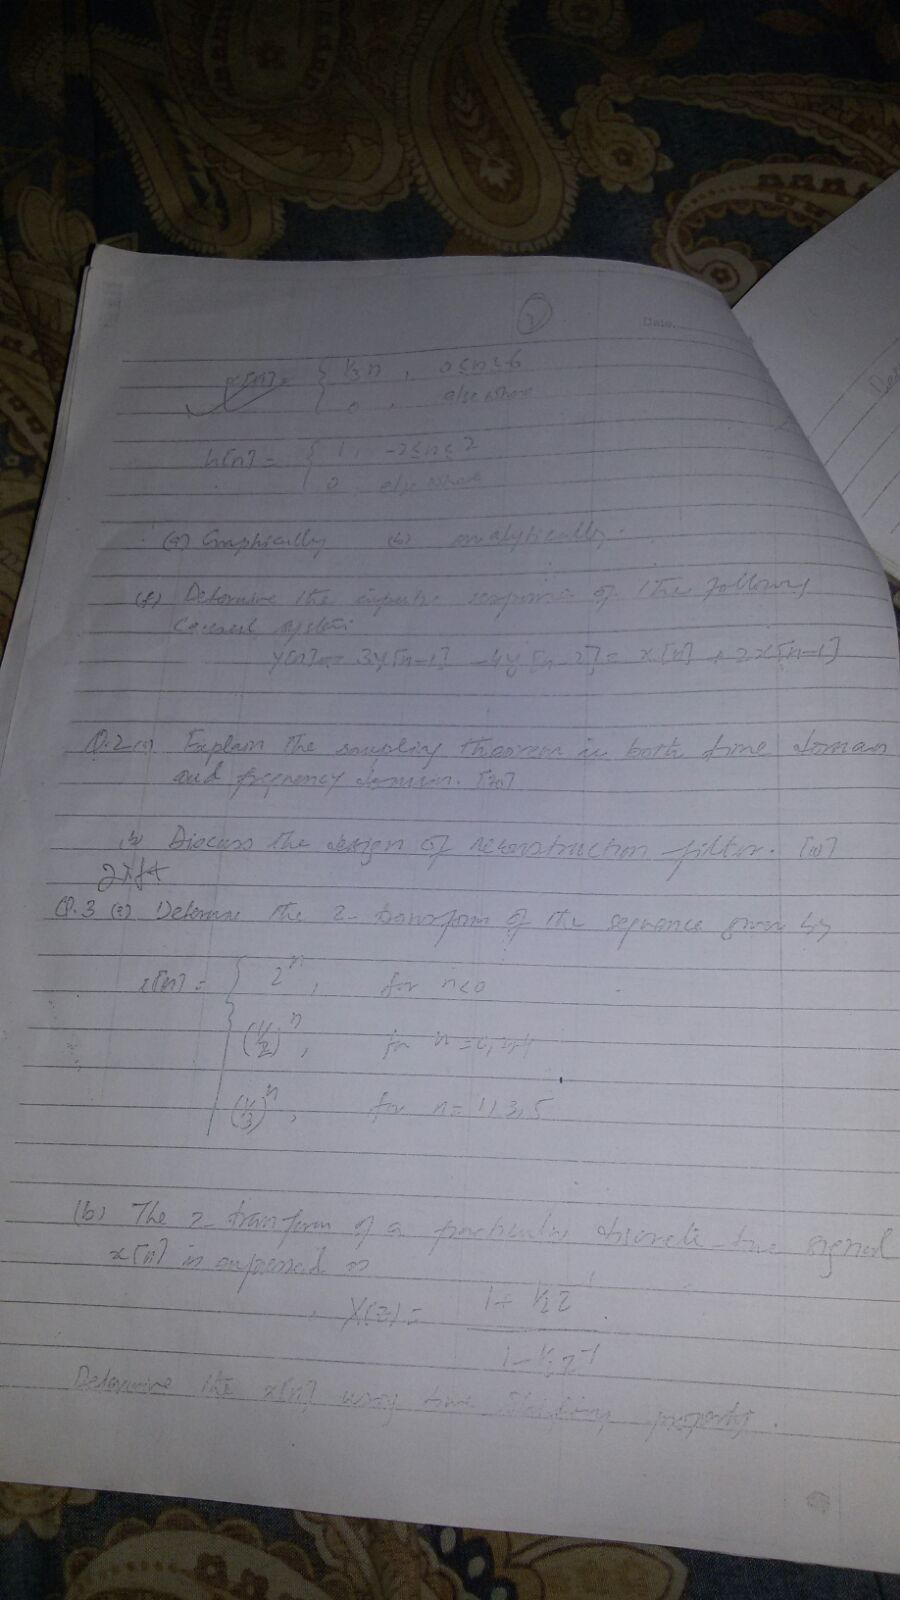 2
Date.
x[n] = { 1/3 n , 0 ≤ n ≤ 6
0 , elsewhere
h[n] = { 1, -2 ≤ n ≤ 2
0 elsewhere
(a) Graphically (b) analytically.
(f) Determine the response of the
system:
y[n] - 3y[n-1] - 4y[n-2] = x[n] + 2x[n-1]
Q.2 (a) Explain the sampling theorem in both time domain
and frequency domain.
(b) Discuss the design of reconstruction filter.
2πft
Q.3 (a) Determine the Z-transform of the sequence given by
x[n] = { 2^n , for n<0
(1/2)^n , for n =
(1/3)^n , for n = 1, 3, 5
(b) The Z-transform of a particular discrete time signal
x[n] is expressed as
X(z) = 1 + 1/2 z^-1
1 - 1/2 z^-1
Determine the x[n] using time shifting property.